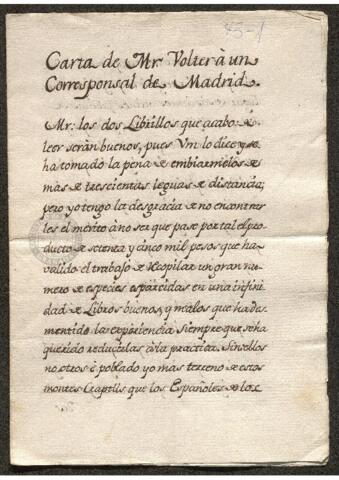 75-1
Carta de Mr. Volter à un
Corresponsal de Madrid.
Mr: los dos Librillos que acabo de
leer serán buenos, pues Vm lo dice, y se
ha tomado la pena de embiarmelos de
mas de trescientas leguas de distancia;
pero yo tengo la desgracia de no encontrar
les el mérito à no ser que pase por tal el pro
ducto de setenta y cinco mil pesos que ha
valido el trabajo de recopilar un gran nu
mero de especies esparcidas en una infini
dad de Libros buenos, y malos que ha des
mentido la experiencia siempre que se ha
querido reducirlas à la practica. Sin ellos
no otros è poblado yo mas terreno de estos
montes que los Españoles de los